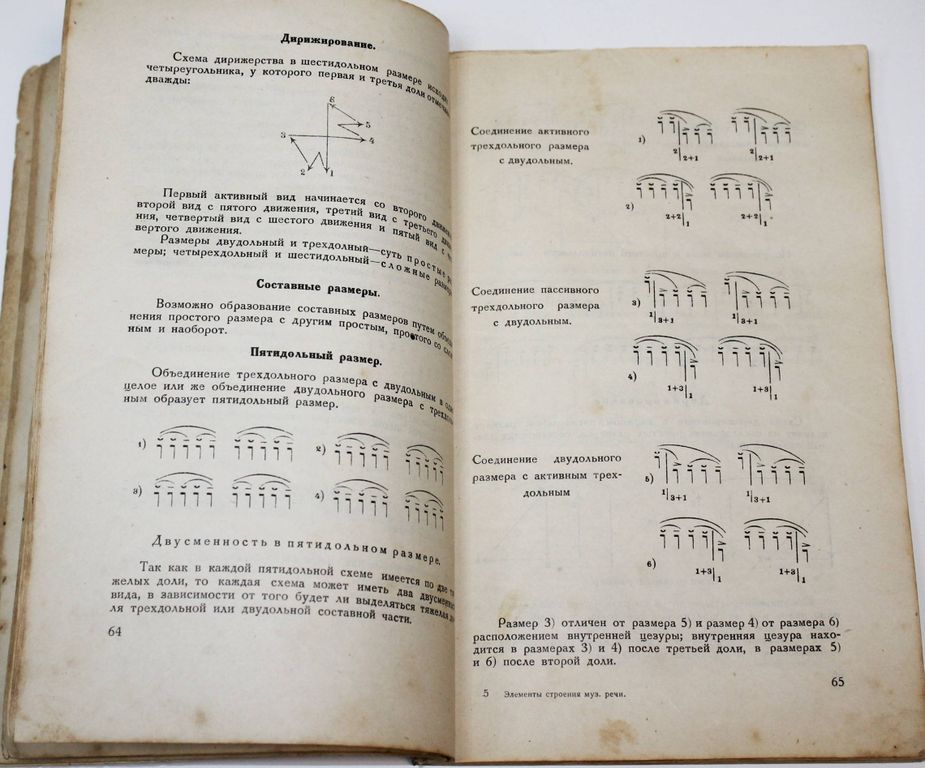 Дирижирование.
Схема дирижерства в шестидольном размере исходит
четыреугольника, у которого первая и третья доли отмеча
дважды:
6
5
3
4
2
1
Первый активный вид начинается со второго движен
второй вид с пятого движения, третий вид с третьего движ
ния, четвертый вид с шестого движения и пятый вид с чет
вертого движения.
Размеры двудольный и трехдолный—суть простые раз
меры; четырехдольный и шестидольный—сложные размеры
Составные размеры.
Возможно образование составных размеров путем объеди
нения простого размера с другим простым, простого со слож
ным и наоборот.
Пятидольный размер.
Объединение трехдольного размера с двудольным в одно
целое или же объединение двудольного размера с трехдоль
ным образует пятидольный размер.
1)
2)
3)
4)
Двусменность в пятидольном размере.
Так как в каждой пятидольной схеме имеется по две тя
желых доли, то каждая схема может иметь два двусменных
вида, в зависимости от того будет ли выделяться тяжелая до
ля трехдольной или двудольной составной части.
64
Соединение активного
трехдольного размера
с двудольным.
1)
2|2+1
2|2+1
2)
2+2|1
2+2|1
Соединение пассивного
трехдольного размера
с двудольным.
3)
1|3+1
1|3+1
4)
1+3|1
1+3|1
Соединение двудольного
размера с активным трех-
дольным
5)
1|3+1
1|3+1
6)
1+3|1
1+3|1
Размер 3) отличен от размера 5) и размер 4) от размера 6)
расположением внутренней цезуры; внутренняя цезура нахо-
дится в размерах 3) и 4) после третьей доли, в размерах 5)
и 6) после второй доли.
65
5 Элементы строения муз. речи.